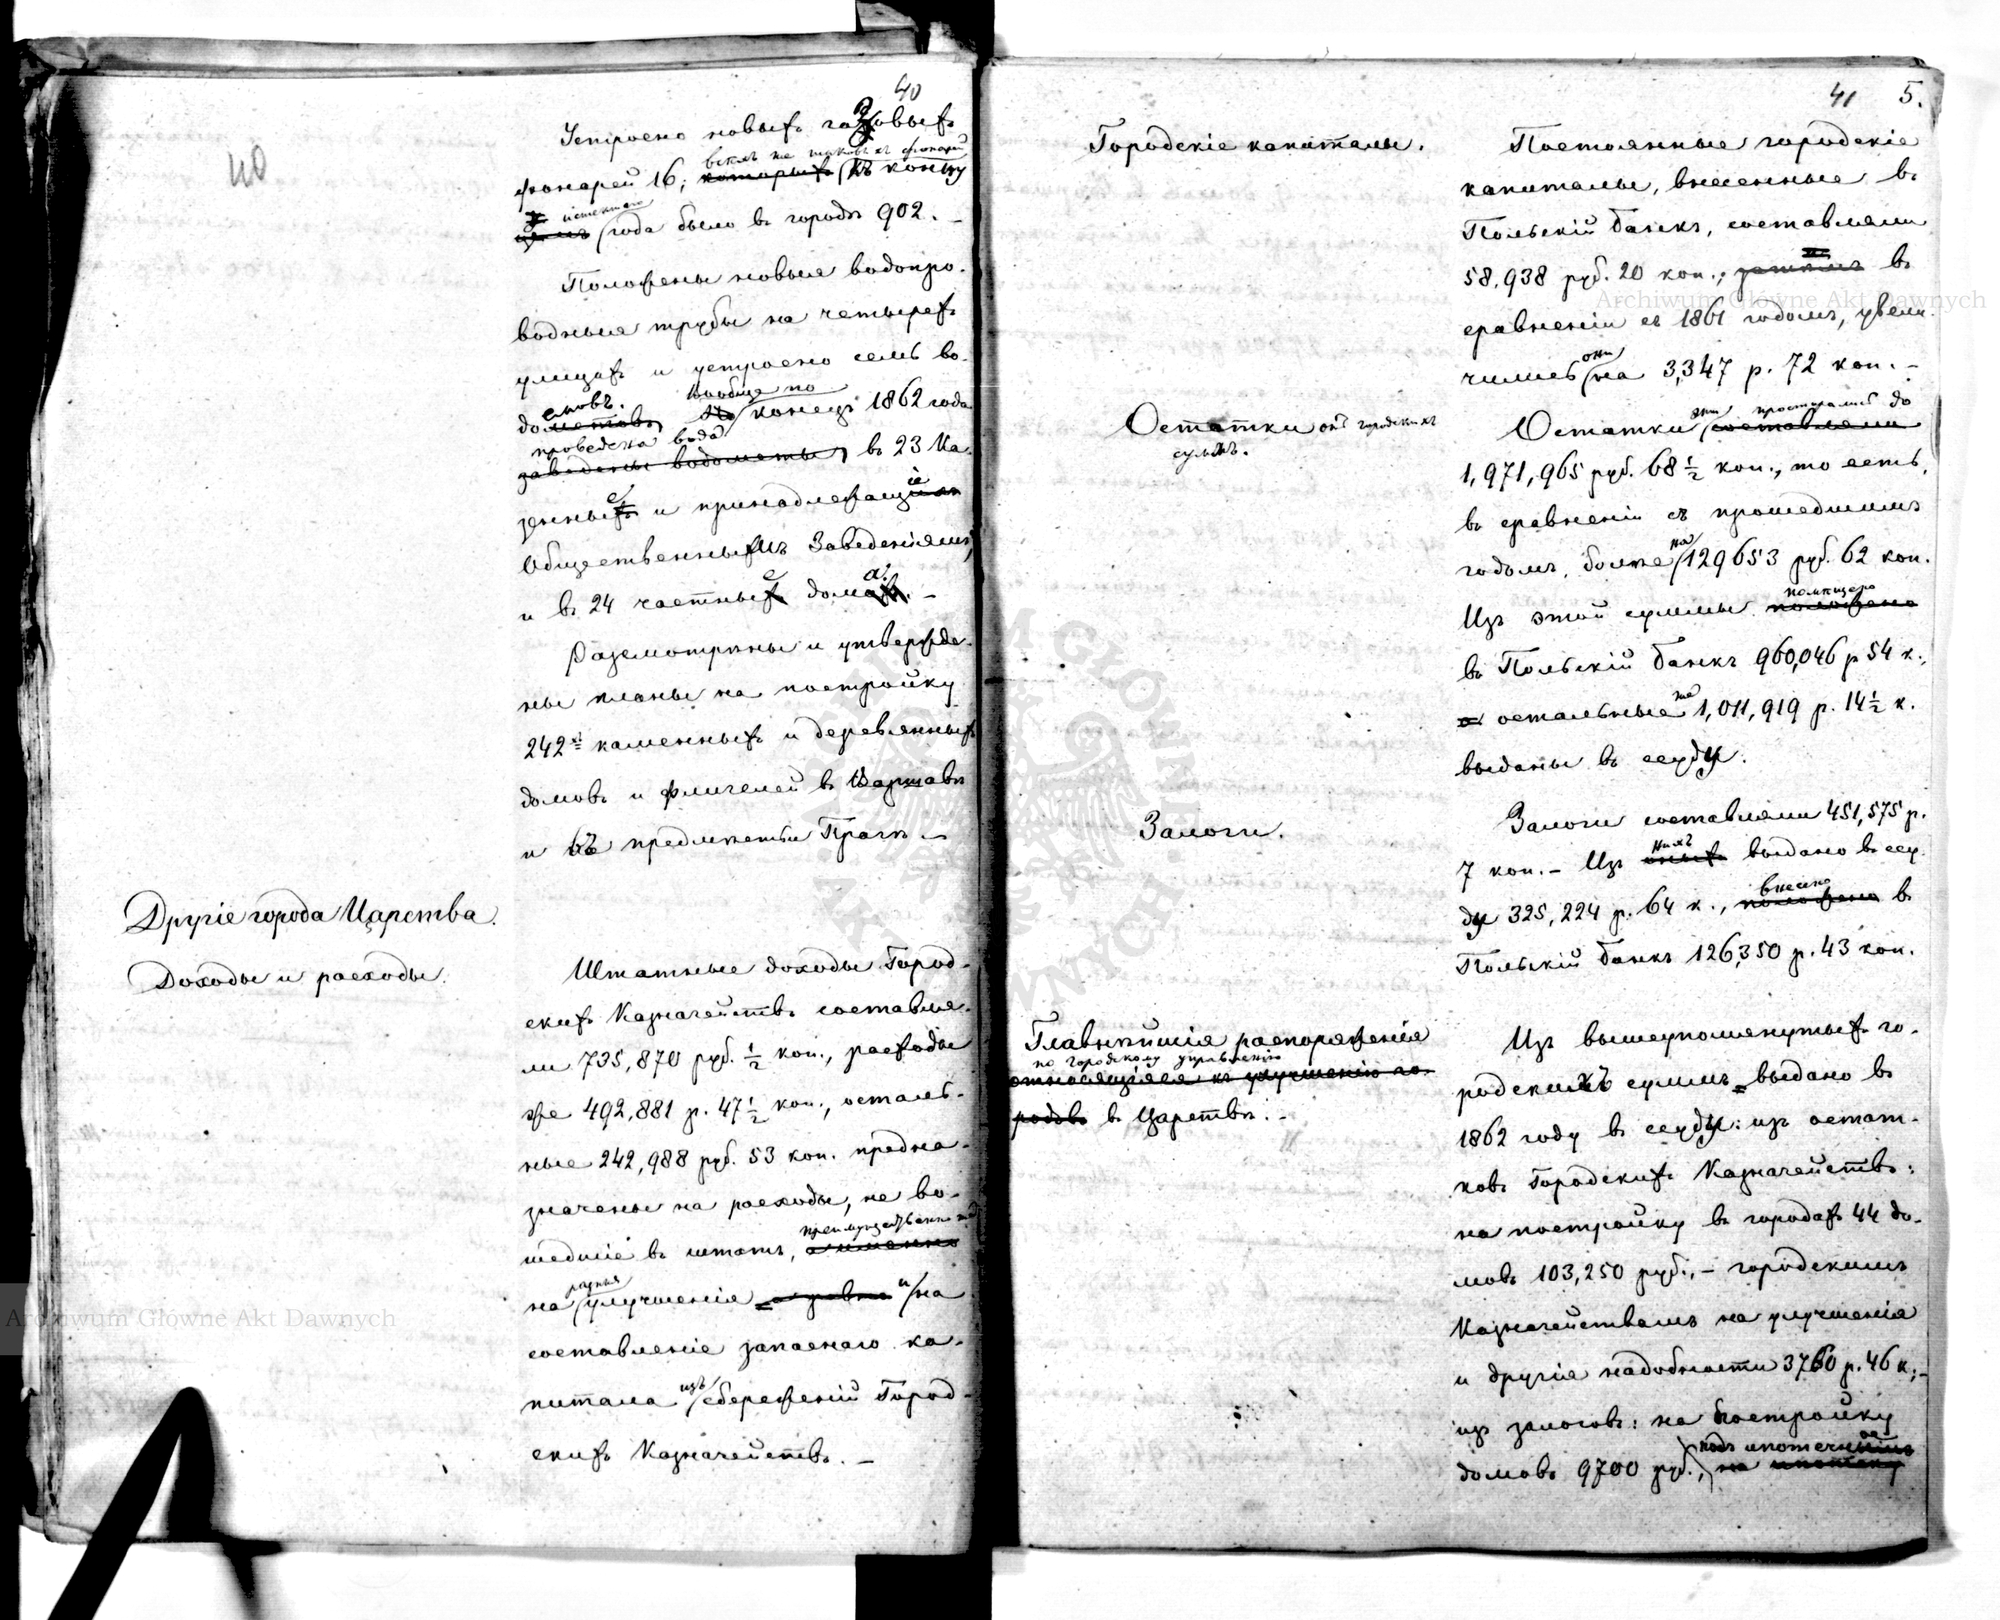 40
40
Устроено новыхъ газовыхъ
всѣхъ же таковыхъ фонарей
фонарей 16; которыхъ къ концу
истекшаго
года было въ городѣ 902. —
Положены новыя водопро-
водныя трубы на четырехъ
улицахъ и устроено семь во-
емовъ. вообще по
дометовъ, конецъ 1862 года
проведена вода
заведены водометы, въ 23 Ка-
е іе
зенныхъ и принадлежащихъ
Общественнымъ Заведеніямъ,
е а.
и въ 24 частныхъ домахъ. —
Разсмотрѣны и утвержде-
ны планы на постройку
242хъ каменныхъ и деревянныхъ
домовъ и флигелей въ Варшавѣ
и въ предмѣстьи Прагѣ. —
Другіе города Царства.
Доходы и расходы.
Штатные доходы Город-
скихъ Казначействъ составля-
ли 735,870 руб. ½ коп., расходы
же 492,881 р. 47½ коп., осталь-
ные 242,988 руб. 53 коп. предна-
значены на расходы, не во-
преимущественно
шедшіе въ штатъ, а именно
разныя
на улучшенія а равно и на
составленіе запаснаго ка-
питала изъ сбереженій Город-
скихъ Казначействъ. —
41 5.
Городскіе капиталы.
Постоянные городскіе
капиталы, внесенные въ
Польскій Банкъ, составляли
58,938 руб. 20 коп.; въ
сравненіи съ 1861 годомъ, увели-
они
чились на 3,347 р. 72 коп. —
Остатки отъ городскихъ
суммъ.
эти простирались до
Остатки составляли
1,971,965 руб. 68½ коп., то есть,
въ сравненіи съ прошедшимъ
на
годомъ, болѣе 129653 руб. 62 коп.
помѣщено
Изъ этой суммы положено
въ Польскій Банкъ 960,046 р 54 к.,
же
а остальные 1,011,919 р. 14½ к.
выданы въ ссуду.
Залоги.
Залоги составляли 451,575 р.
нихъ
7 коп. — Изъ оныхъ выдано въ ссу-
внесено
ду 325,224 р. 64 к., положено въ
Польскій Банкъ 126,350 р. 43 коп.
Главнѣйшія распоряженія
по городскому управленію
относящіяся къ улучшенію го-
родовъ въ Царствѣ. —
Изъ вышеупомянутыхъ го-
родскихъ суммъ выдано въ
1862 году въ ссуду: изъ остат-
ковъ Городскихъ Казначействъ:
на постройку въ городахъ 44 до-
мовъ 103,250 руб., — городскимъ
Казначействамъ на улучшенія
и другія надобности 3760 р. 46 к.; —
изъ залоговъ: на постройку
подъ ипотечное
домовъ 9700 руб., на ипотеку
Archiwum Główne Akt Dawnych
Archiwum Główne Akt Dawnych
ARCHIWUM GŁÓWNE AKT DAWNYCH